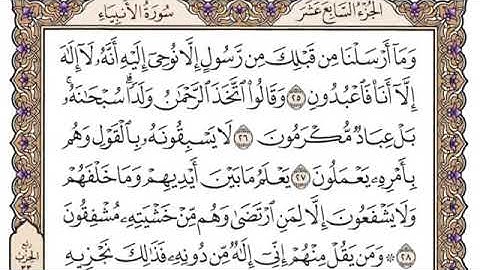 الجزء السابع عشر
سورة الأنبياء
وَمَا أَرْسَلْنَا مِن قَبْلِكَ مِن رَّسُولٍ إِلَّا نُوحِيٓ إِلَيْهِ أَنَّهُۥ لَآ إِلَٰهَ
إِلَّآ أَنَا۠ فَٱعْبُدُونِ ٢٥ وَقَالُوا۟ ٱتَّخَذَ ٱلرَّحْمَٰنُ وَلَدًا ۗ سُبْحَٰنَهُۥ ۚ
بَلْ عِبَادٌ مُّكْرَمُونَ ٢٦ لَا يَسْبِقُونَهُۥ بِٱلْقَوْلِ وَهُم
بِأَمْرِهِۦ يَعْمَلُونَ ٢٧ يَعْلَمُ مَا بَيْنَ أَيْدِيهِمْ وَمَا خَلْفَهُمْ
وَلَا يَشْفَعُونَ إِلَّا لِمَنِ ٱرْتَضَىٰ وَهُم مِّنْ خَشْيَتِهِۦ مُشْفِقُونَ
٢٨ ۞ وَمَن يَقُلْ مِنْهُمْ إِنِّيٓ إِلَٰهٌ مِّن دُونِهِۦ فَذَٰلِكَ نَجْزِيهِ
ربع
الحزب
٣٣